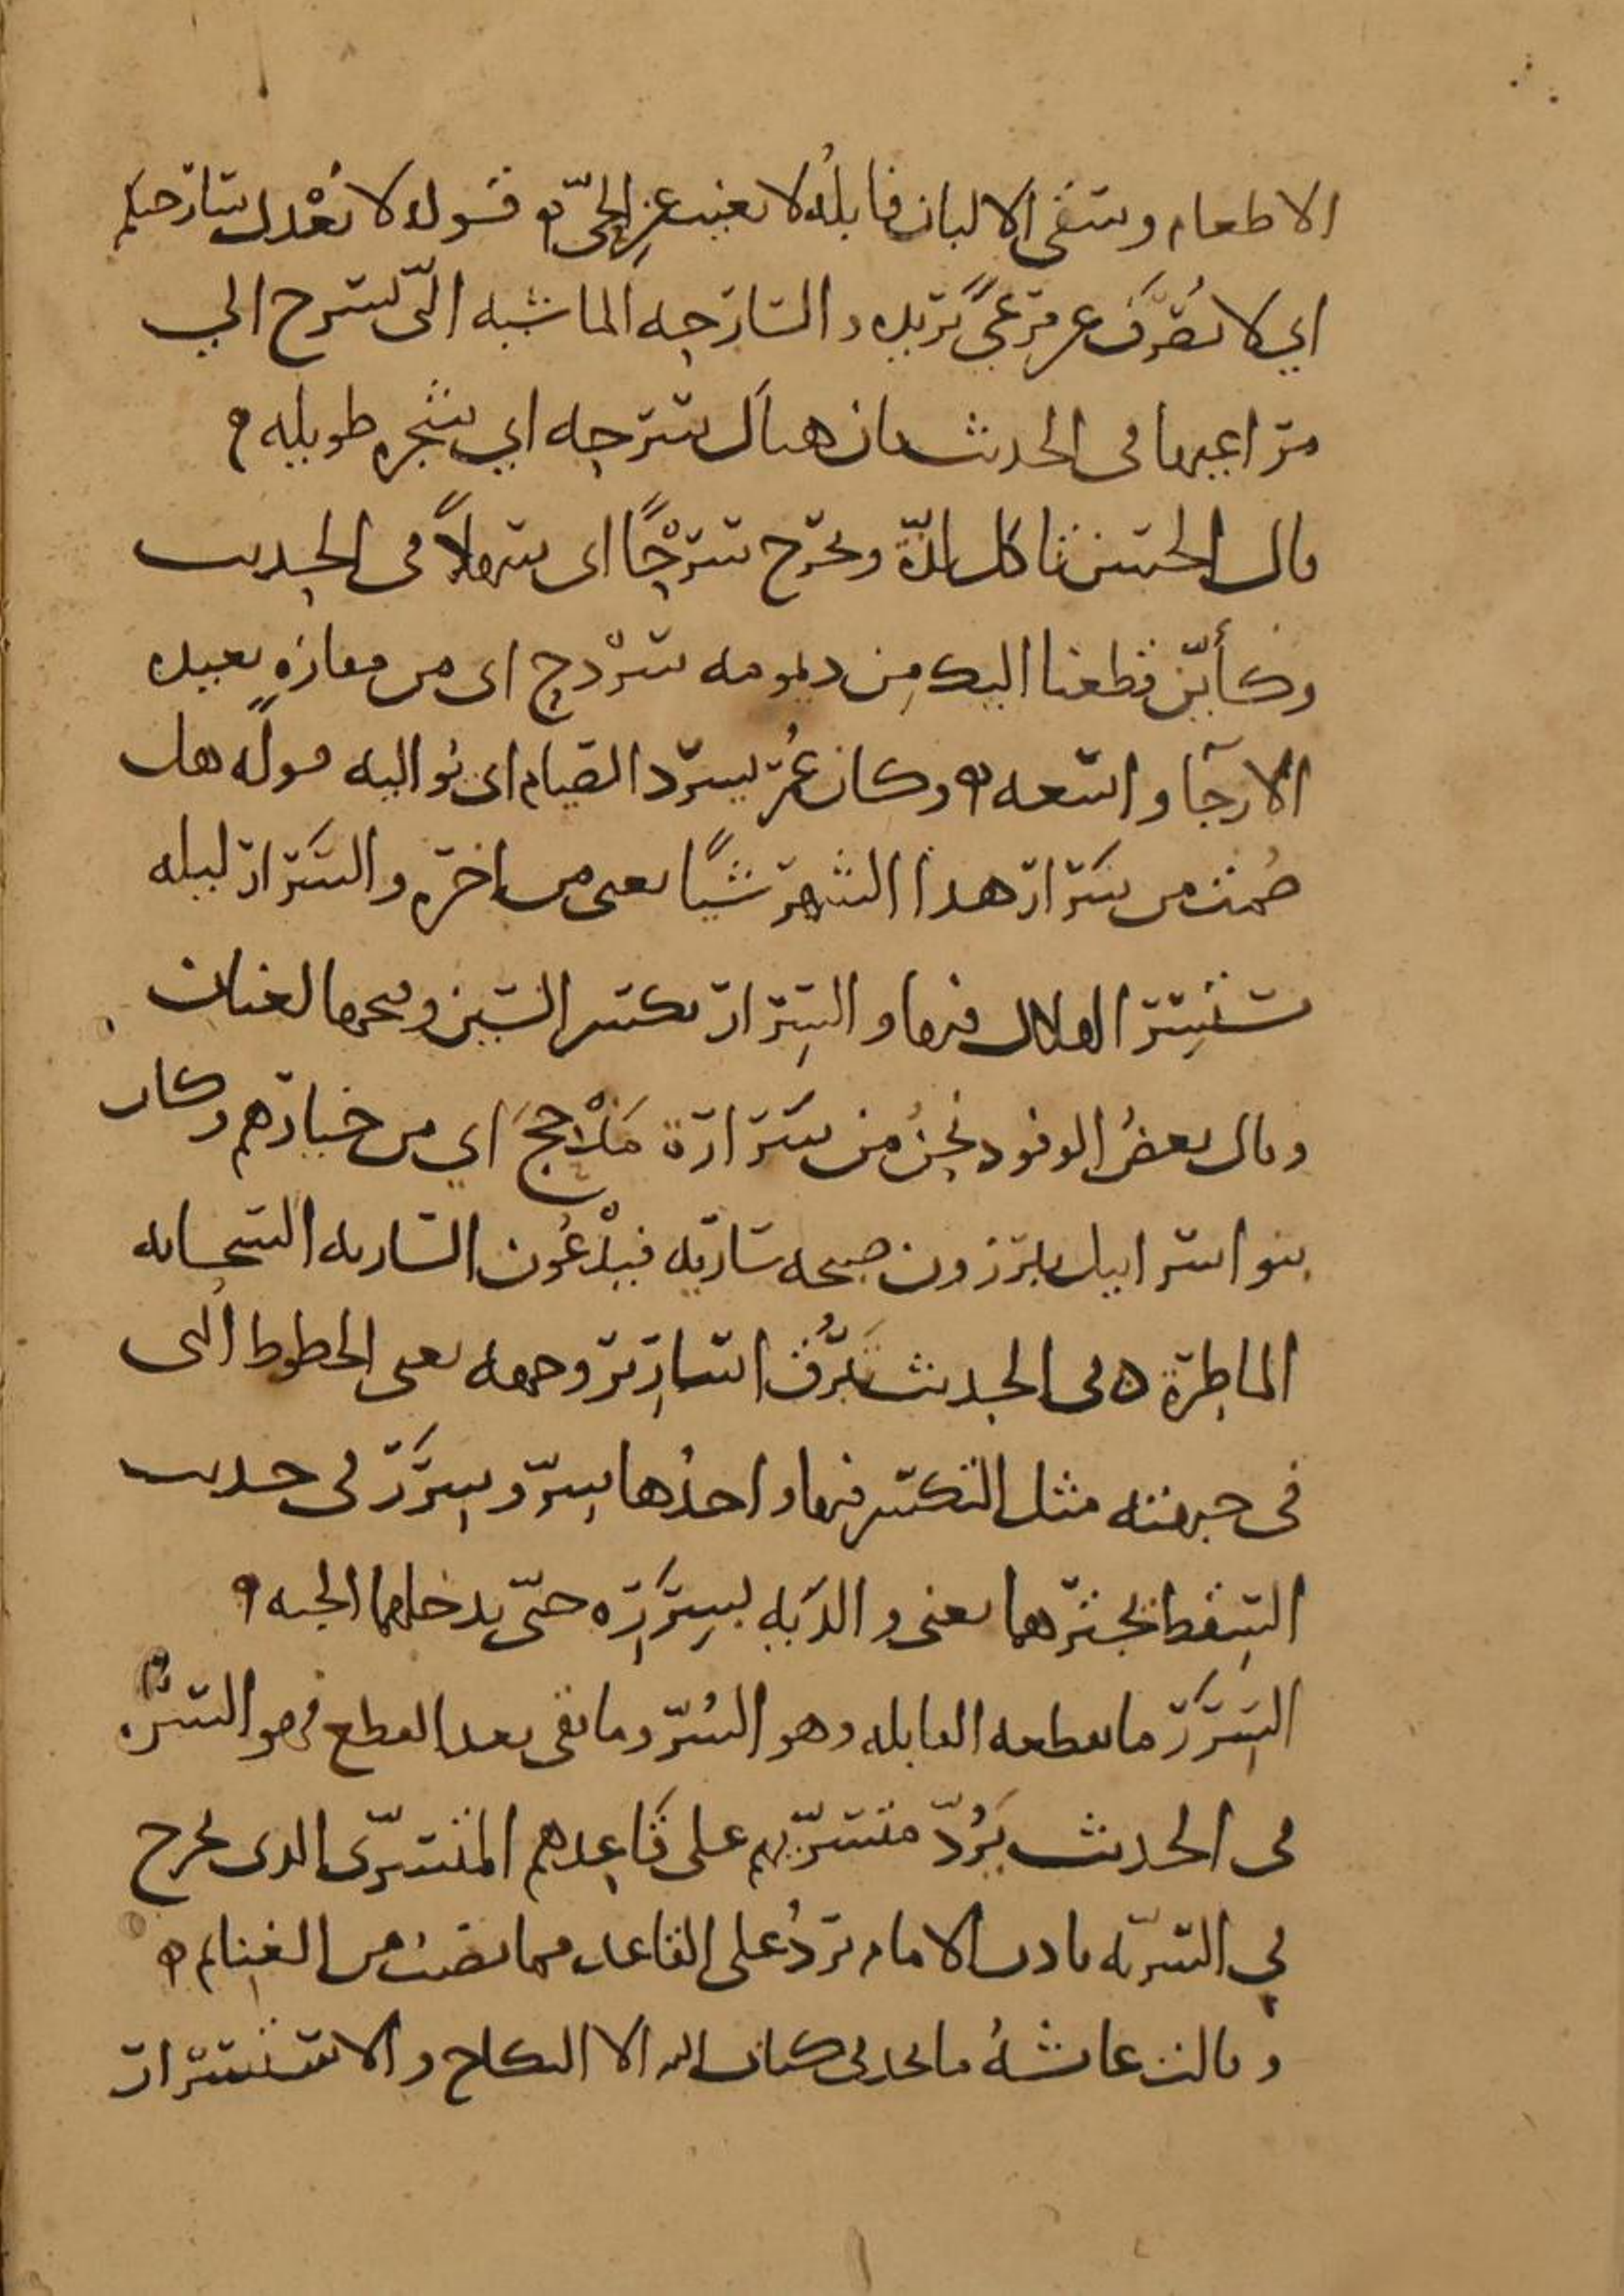 الاطعام وسقى الالبان فابله لا تغيب عن الحيّ ه قوله لا تُعْدل سارحتكم
اي لا تُصْرَف عن مرعىً تريده والسارحه الماشيه التي تسرح الي
مراعيها في الحديث فان هناك سرحه اي شجره طويله ه
قال الحسن تاكل لذّة وتخرج سُرُحًا اي سهلاً في الحديث
وكأيّن قطعنا اليك من ديمومه سَرْدح اي من مفازهٍ بعيده
الارجآ واسعه ه وكان عُمر يسرد الصيام اي يُواليه قوله هل
صُمت من سَرار هذا الشهر شيًا يعني من اخره والسَرار ليله
يستسِرّ الهلال فيها والسِرار بكسر السين وفتحها لغتان
وقال بعضُ الوفود نحنُ من سَرارة مَذْحج اي من خيارهم وكان
بنو اسرايل يبرزون صبيحه ساريه فيدْعُون الساريه السحابه
الماطرة ه في الحديث تبرُق اسارير وجهه يعني الخطوط التى
في جبهته مثل التكسّر فيها واحدُها سِرّ وسِرَرٌ في حديث
السِقط يجترّهما يعني والدَيه بسِرَرِه حتّى يدخلهما الجنه ه
السِرَرَ ما تقطعه القابله وهو السُرّ وما بقي بعد القطع فهو السُرَّه
في الحديث يَرُدّ متسرّيهم على قَاعِدهم المتسرّى الذى يخرج
في السريّه باذن الامام يردُ على القاعد مما يصيب من الغنايم ه
وقالت عائشهُ ما نجد في كتاب الله الا النكاح والاستسرار